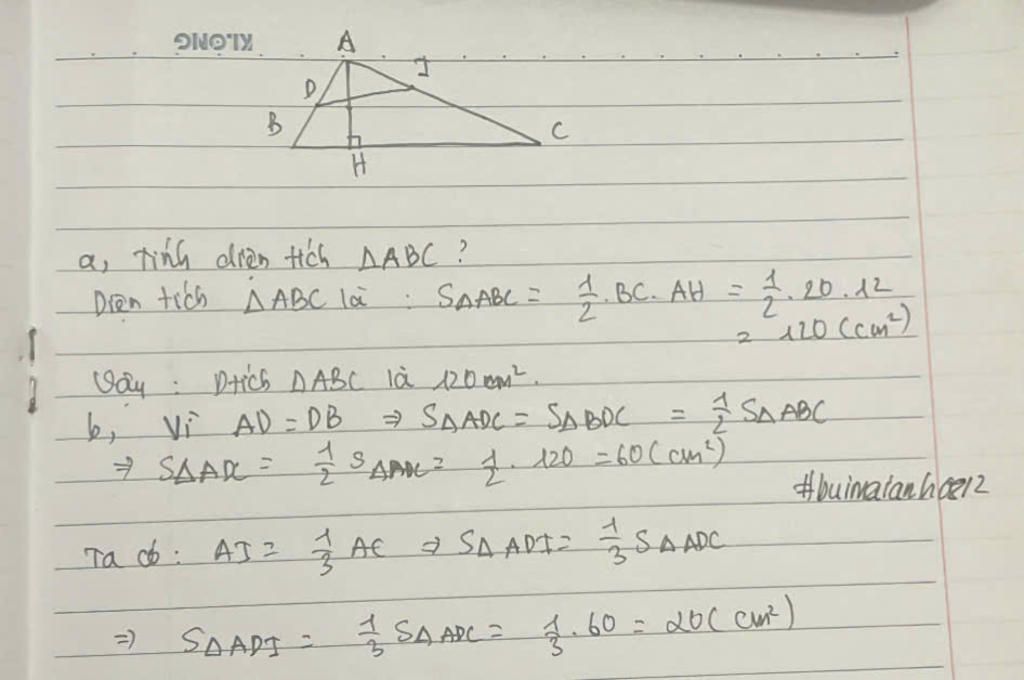 KLONG
A
I
D
B
C
H
a, Tính diện tích ΔABC ?
Diện tích ΔABC là : SΔABC = 1/2 . BC . AH = 1/2 . 20 . 12
= 120 (cm²)
Vậy : Dtích ΔABC là 120 cm².
b, Vì AD = DB ⇒ SΔADC = SΔBDC = 1/2 SΔABC
⇒ SΔADC = 1/2 SΔABC = 1/2 . 120 = 60 (cm²)
#buimaianh0812
Ta có : AI = 1/3 AC ⇒ SΔADI = 1/3 SΔADC
⇒ SΔADI = 1/3 SΔADC = 1/3 . 60 = 20 (cm²)